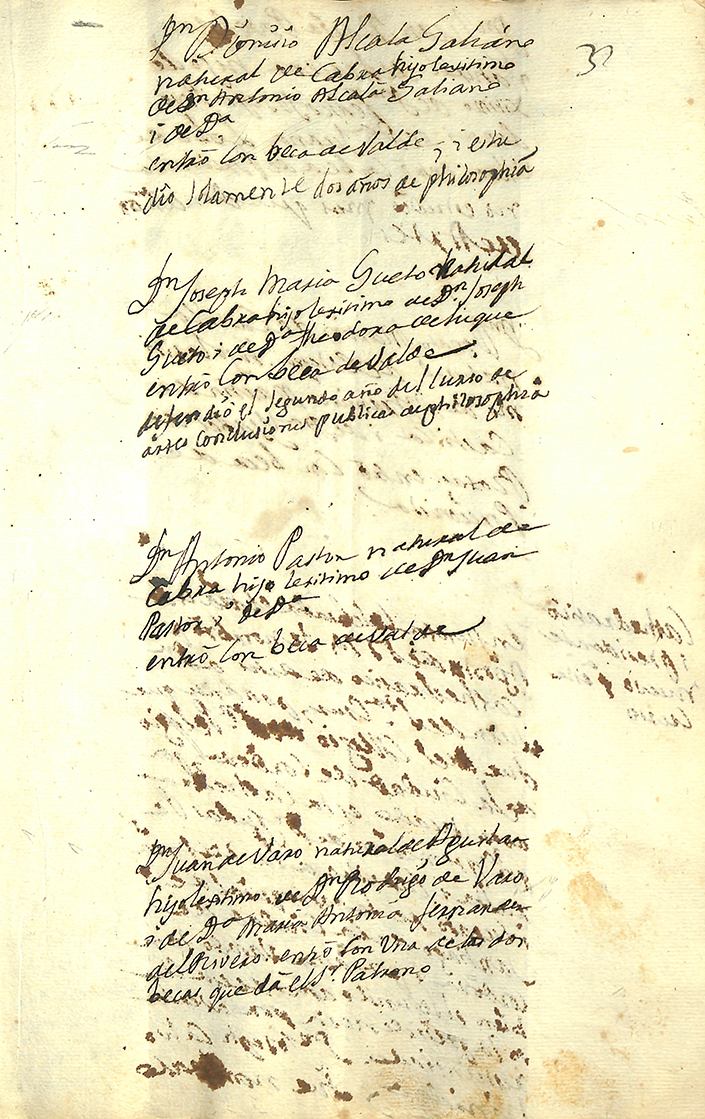 Dn Dionisio Alcala Galiano
natural de Cabra hijo lexitimo
de Dn Antonio Alcalà Galiano
i de Da
entrò con beca de Valde , i estu
dio solamente dos años de philosophia
Dn Joseph Maria Gueto natural
de Cabra hijo lexitimo de Dn Joseph
Gueto i de Da Theodora de Luque
entrò con beca de Valde
defendiò el segundo año del Curso de
artes conclusiones publicas de philosophia
Dn Antonio Pastor natural de
Cabra hijo lexitimo de Dn Juan
Pastor i de Da
entrò con beca de Valde
Dn Juan de Varo natural de Aguilar
hijo lexitimo de Dn Rodrigo de Varo
i de Da Maria Antonia Fernandez
del Rivero: entrò con una de las dos
becas que dà el Sr. Patrono